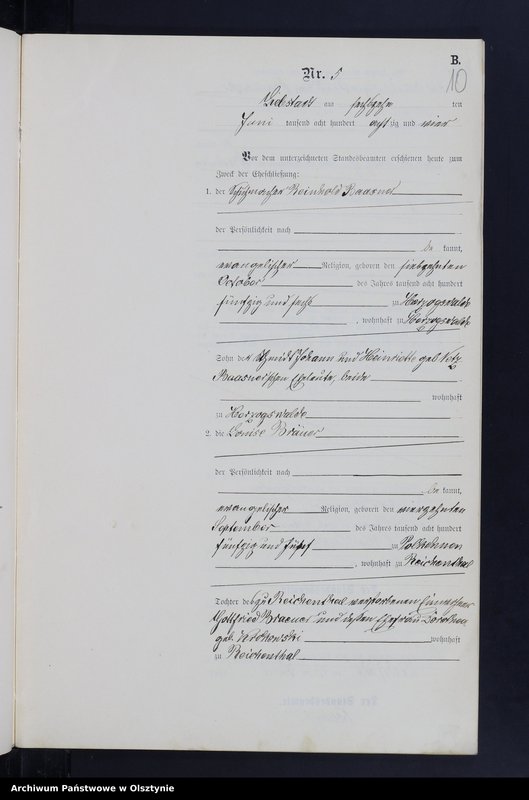 B.
10
Nr. 5
Liebstadt am sechszehn ten
Juni tausend acht hundert achtzig und vier
Vor dem unterzeichneten Standesbeamten erschienen heute zum
Zweck der Eheschließung:
1. der Schuhmacher Reinhold Baasner
der Persönlichkeit nach
be kannt,
evangelischer Religion, geboren den siebzehnten
October des Jahres tausend acht hundert
fünfzig und sechs zu Herzogswalde
, wohnhaft zu Herzogswalde
Sohn der Schmidt Johann und Heinriette geb
Baasnerschen Eheleute, beide
wohnhaft
zu Herzogswalde
2. die Louise Bräuer
der Persönlichkeit nach
be kannt,
evangelischer Religion, geboren den vierzehnten
September des Jahres tausend acht hundert
fünfzig und fünf zu
, wohnhaft zu Reichenthal
Tochter des zu Reichenthal verstorbenen
Gottfried und dessen Ehefrau Dorothea
geb. wohnhaft
zu Reichenthal
Archiwum Państwowe w Olsztynie